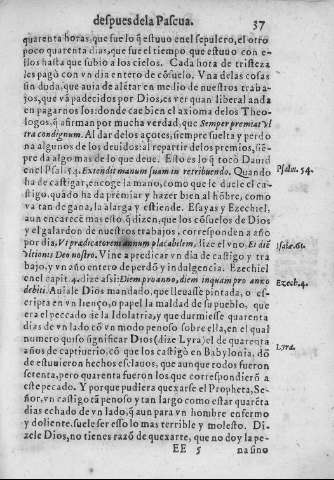 despues dela Pascua. 37
quarenta horas, que fue lo q̃ estuuo en el sepulcro, el otro
poco quarenta dias, que fue el tiempo que estuuo con e-
llos hasta que subio a los cielos. Cada hora de tristeza
les pagò con vn dia entero de cõsuelo. Vna delas cosas
sin duda, que auia de alẽtar en medio de nuestros traba-
jos, que vã padecidos por Dios, es ver quan liberal anda
en pagarnos los: donde cae bien el axioma delos Theo-
logos, q̃ afirman por mucha verdad, que Semper premiat vl
tra condignum. Al dar delos açotes, siempre suelta y perdo
na algunos de los deuidos: al repartir delos premios, siẽ-
pre da algo mas de lo que deue. Esto es lo q̃ tocò Dauid
en el Psal. 54. Extendit manum suam in retribuendo. Quando Psalm. 54.
ha de castigar, encoge la mano, como que le duele el ca-
stigo, quãdo ha dà premiar y hazer bien al hõbre, como
va tan de gana, la alarga y estiende. Esayas y Ezechiel,
aun encarecẽ mas esto, q̃ dizen, que los cõsuelos de Dios
y el galardon de nuestros trabajos, corresponden a año
por dia, Vt prædicatorem annum placabilem, dize el vno. Et diẽ Isahe. 61.
vltionis Deo nostro. Vine a predicar vn dia de castigo y tra
bajo, y vn año entero de perdõ y indulgencia. Ezechiel
en el capit. 4. dize assi: Diem pro anno, diem inquam pro anno Ezech. 4.
dedi tibi. Auiale Dios mandado, que lleuasse pintada, o es-
cripta en vn lienço, o papel la maldad de su pueblo, que
era el peccado de la Idolatria, y que durmiesse quarenta
dias de vn lado cõ vn modo penoso sobre ella, en el qual
numero quiso significar Dios (dize Lyra) el de quarenta Lyra.
años de captiuerio, cõ que los castigò en Babylonia, dõ
de estuuieron hechos esclauos, que aunque todos fueron
setenta, pero quarenta fueron los que correspondierõ a
este pecado. Y porque pudiera quexarse el Propheta, Se-
ñor, vn castigo tã penoso y tan largo como estar quarẽta
dias echado de vn lado, q̃ aun para vn hombre enfermo
y doliente, suele ser esso lo mas terrible y molesto. Di-
zele Dios, no tienes razõ de quexarte, que no doy la pe-
EE 5 na sino